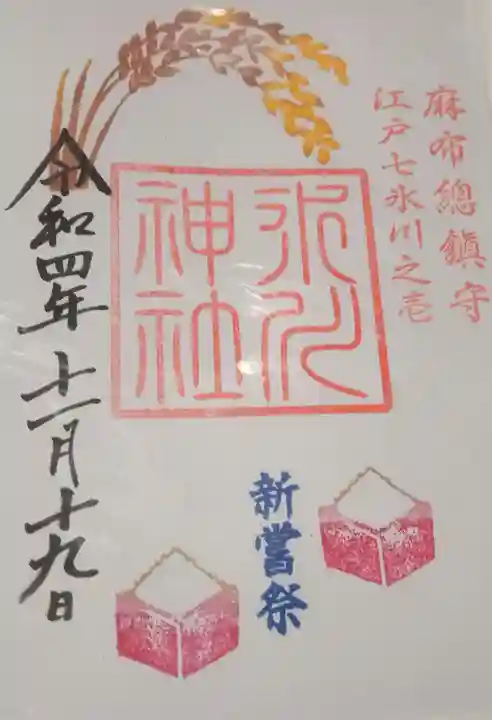 麻布總鎮守
江戸七氷川之壱
氷川
神社
新嘗祭
令和四年十一月十九日